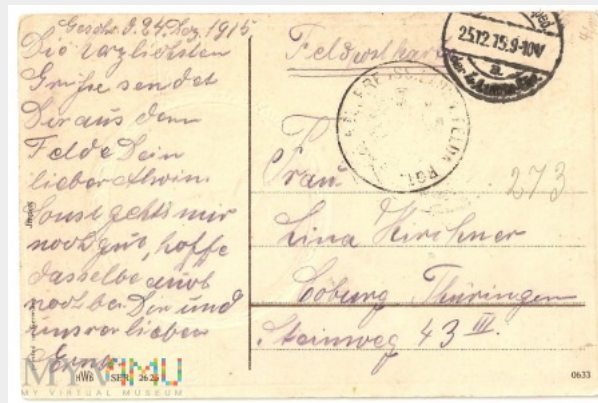 Geschr. d. 24. Dez. 1915
Die herzlichsten
Grüße sendet
Dir aus dem
Felde Dein
lieber Alwin.
Sonst geht's mir
noch gut, hoffe
dasselbe auch
noch bei Dir und
unsrer lieben
Erna
HWB SER. 2626
Feldpostkarte
25.12.15.9-10V
a.
273
Frau
Lina Kirchner
Coburg Thüringen
Steinweg 43 III.
0633
MY VIRTUAL MUSEUM